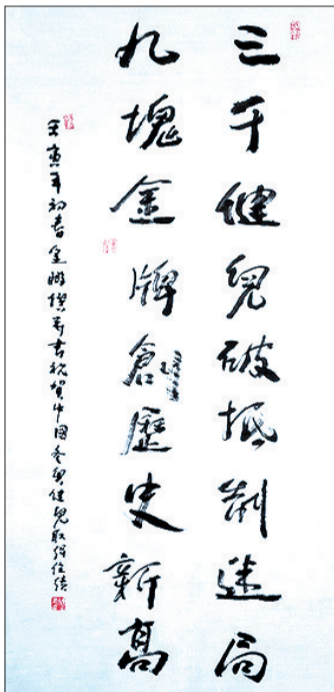 三千健兒破抵制迷局
九塊金牌創歷史新高
壬寅年初春金湖撰并書祝賀中國冬奧健兒取得佳績